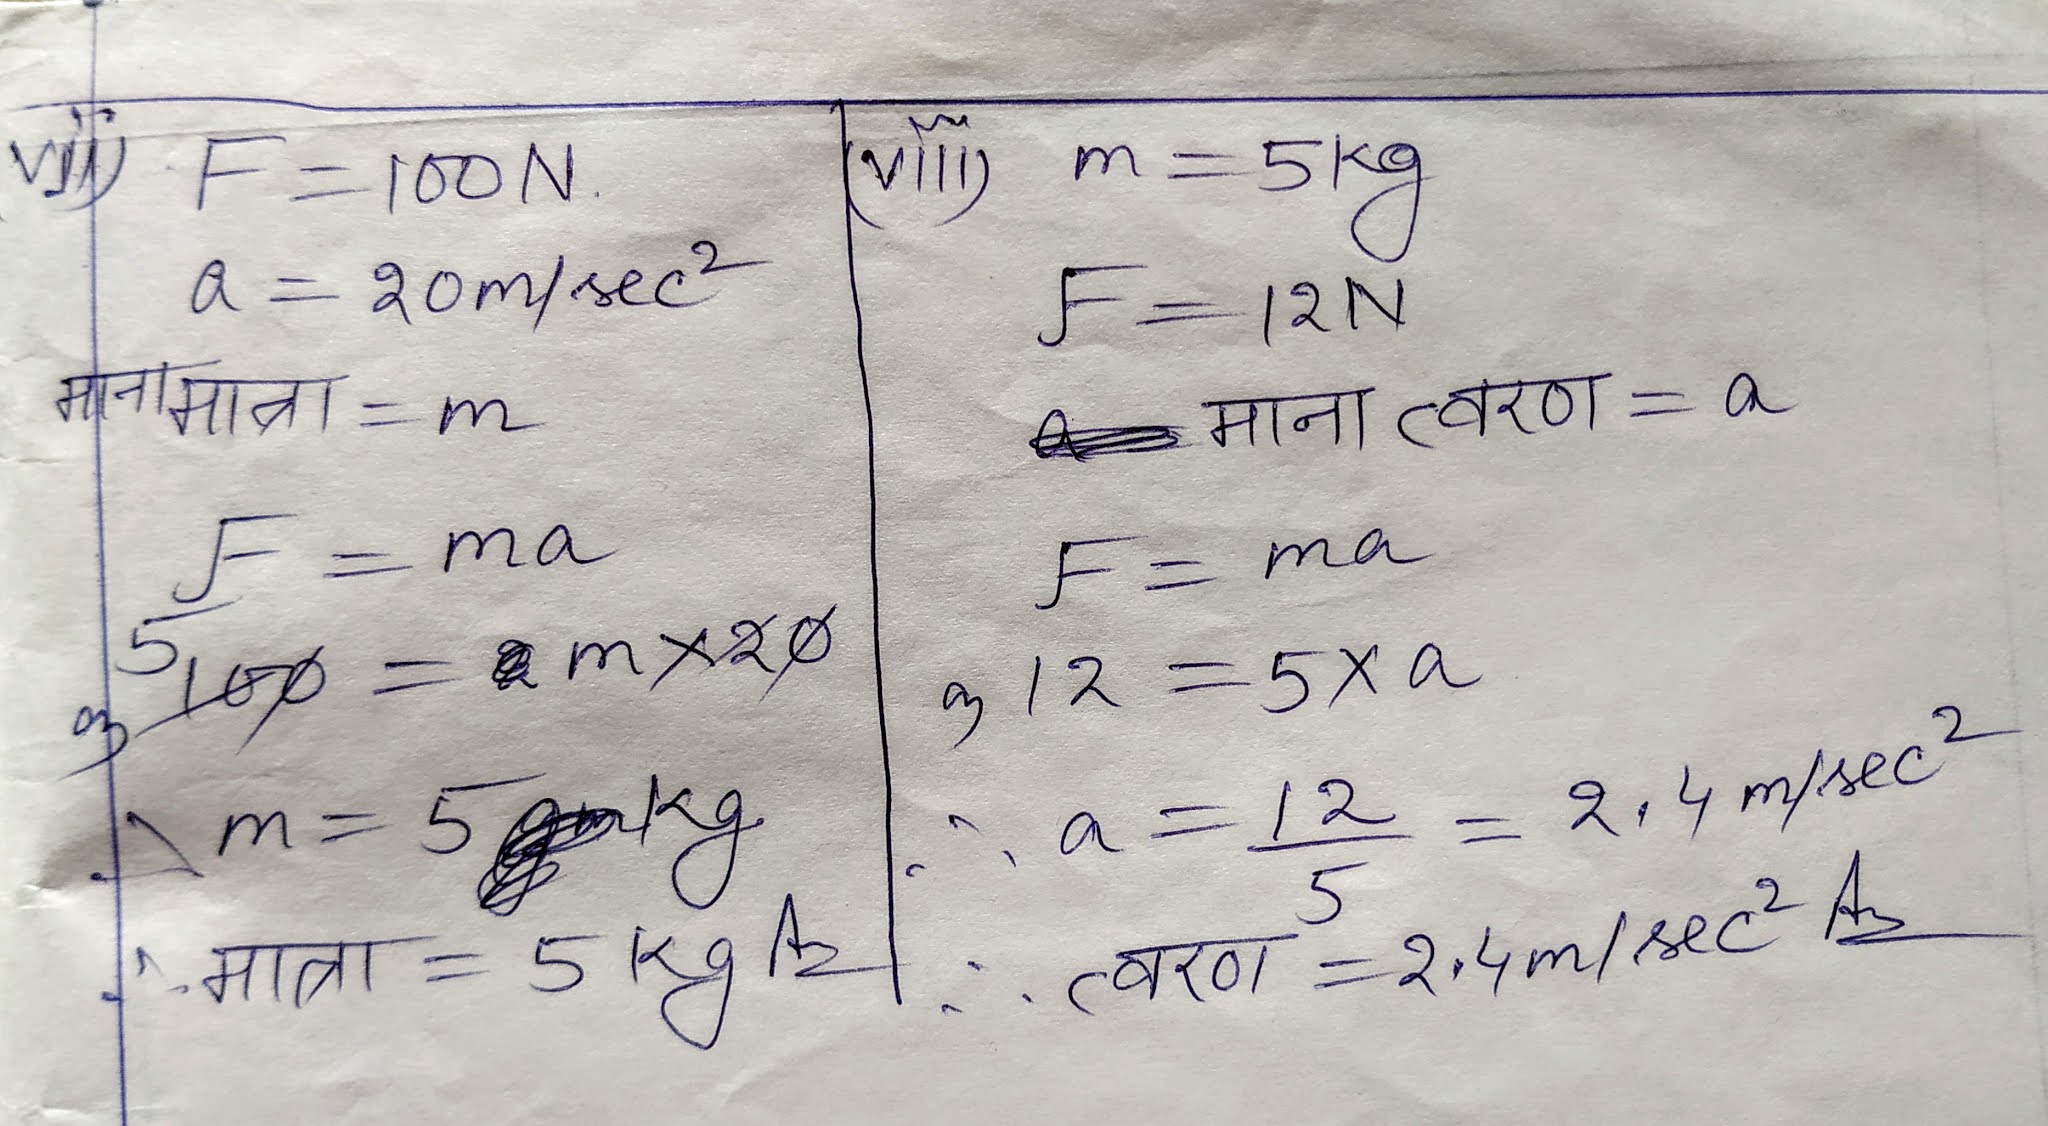 vii) F = 100N.
a = 20m/sec²
माना मात्रा = m
F = ma
5
100 = m×20
m = 5 kg
∴ मात्रा = 5 kg
(viii) m = 5kg
F = 12N
माना त्वरण = a
F = ma
12 = 5×a
∴ a = 12/5 = 2.4 m/sec²
∴ त्वरण = 2.4m/sec²